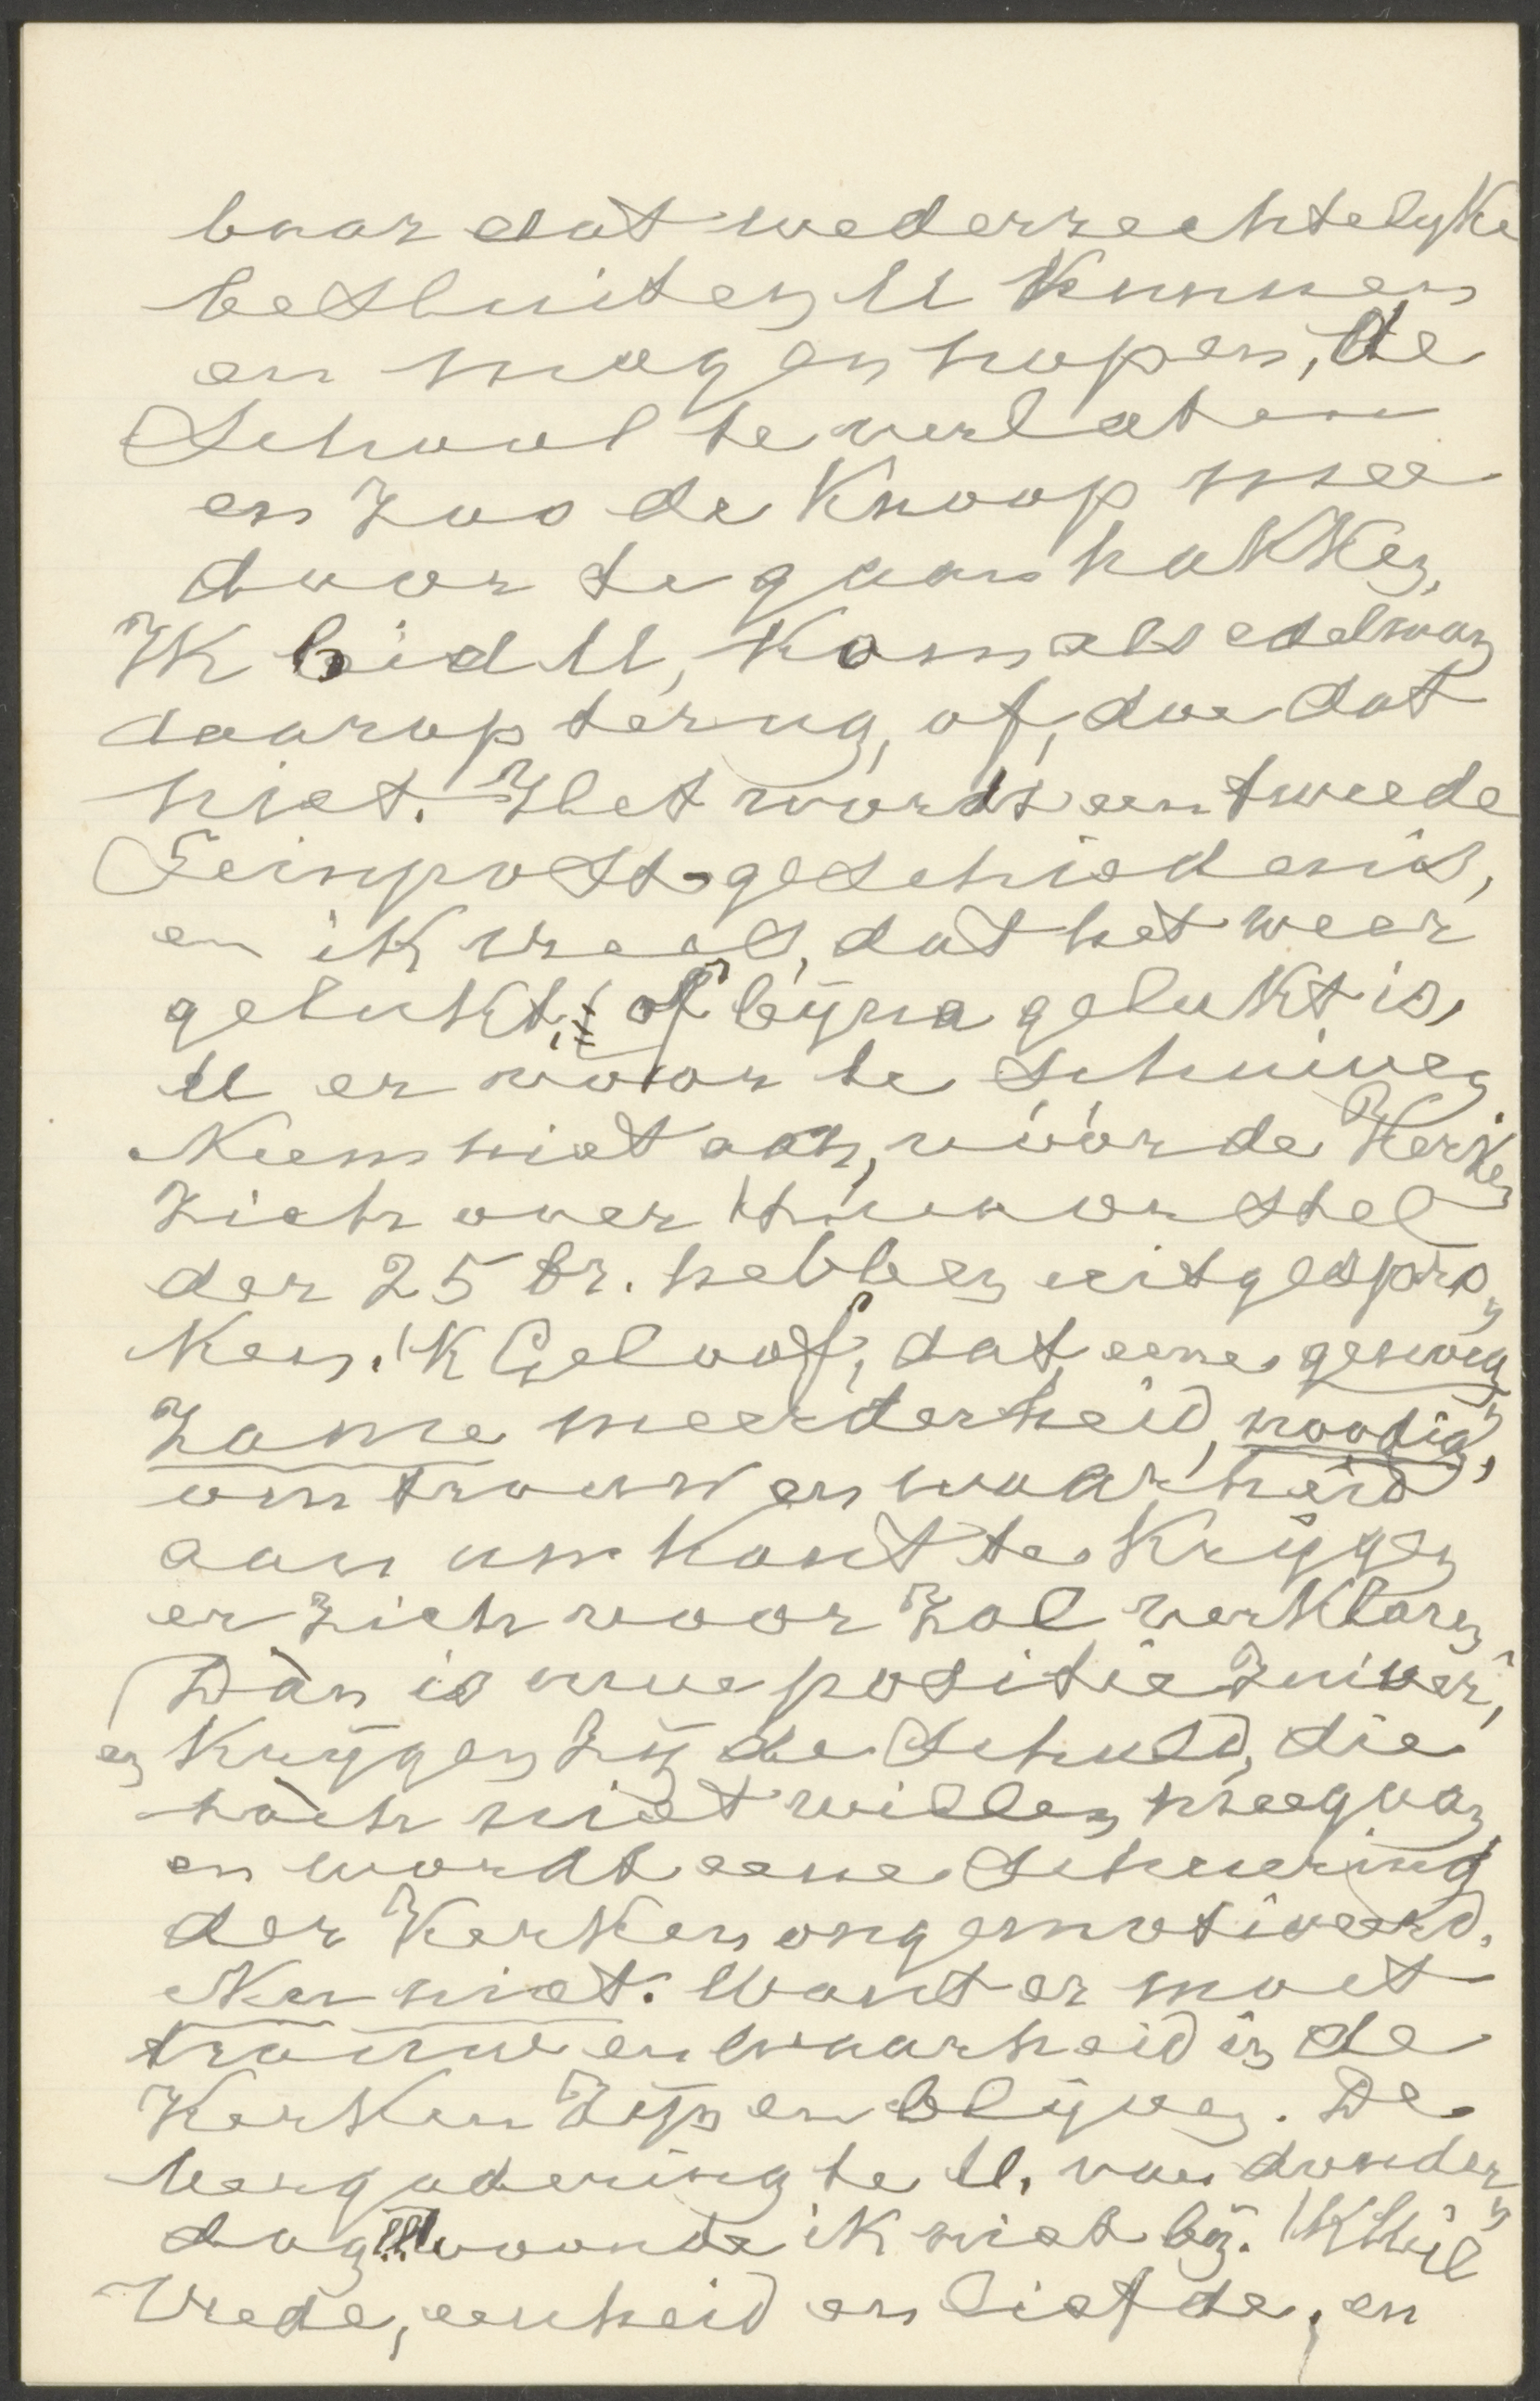 baar dat wederrechtelyke
besluiten U kunnen
en mogen nopen, de
School te verlaten
en zoo de Knoop mee
door te gaan hakken,
Ik bid U, kom als edelman
daarop terug, of, doe dat
niet. Het wordt een tweede
Seinpost-geschiedenis,
en ik vrees, dat het weer
gelukt, of byna gelukt is,
U er vóór te schuiven
Neem niet aan, vóór de Kerken
zich over 't nieuw voorstel
der 25 br. hebben uitgespro„
ken. 'k Geloof, dat eene genoeg„
zame meerderheid, noodig,
om trouw en waarheid
aan uw kant te krygen
er zich voor zal verklaren
Dàn is uwe positie zuiver,
en krygen zy de schuld, die
nòch niet willen meegaan,
en wordt eene scheuring
der Kerken ongemotiveerd.
Nu niet. Want er moet
trouw en waarheid in de
Kerken zyn en blyven. De
vergadering te U. van donder„
dag woonde ik niet by. 'k Wil
Vrede, eenheid en liefde, en